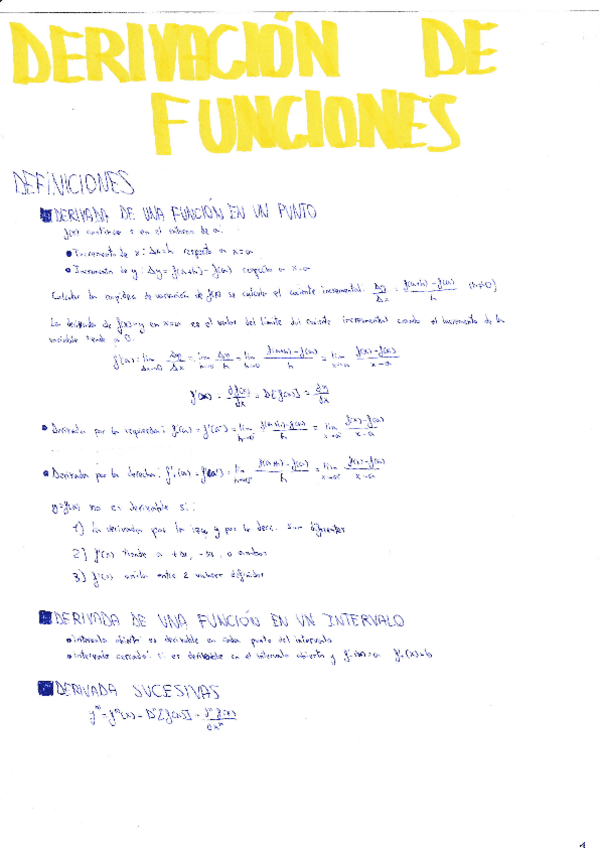 DERIVACIÓN DE
FUNCIONES
DEFINICIONES
DERIVADA DE UNA FUNCIÓN EN UN PUNTO
f(x) continua en el entorno de a.
• Incremento de x: Δx=h respecto a x=a
• Incremento de y: Δy= f(a+h)-f(a) respecto a x=a
Calcular la de variación de f(x) se calcula el cociente incremental: Δy/Δx = f(a+h)-f(a)/h (h≠0)
La derivada de f(x)=y en x=a es el valor del límite del cociente incremental cuando el incremento de la
variable tiende a 0.
f'(a)= lim Δx→0 Δy/Δx = lim h→0 Δy/h = lim h→0 f(a+h)-f(a)/h = lim x→a f(x)-f(a)/x-a
f'(x)= df(x)/dx = D[f(x)] = dy/dx
• Derivada por la izquierda: f'-(a) = f'(a-) = lim h→0- f(a+h)-f(a)/h = lim x→a- f(x)-f(a)/x-a
• Derivada por la derecha: f'+(a) = f'(a+) = lim h→0+ f(a+h)-f(a)/h = lim x→a+ f(x)-f(a)/x-a
y=f(x) no es derivable si:
1) La derivada por la izq y por la derc. son diferentes
2) f'(x) tiende a +∞, -∞, o ambos
3) f'(x) oscila entre 2 valores
DERIVADA DE UNA FUNCIÓN EN UN INTERVALO
• Intervalo abierto: es derivable en cada punto del intervalo
• Intervalo cerrado: si es derivable en el intervalo abierto y
DERIVADA SUCESIVAS
yⁿ = fⁿ(x) = Dⁿ[f(x)] = dⁿf(x)/dxⁿ
1